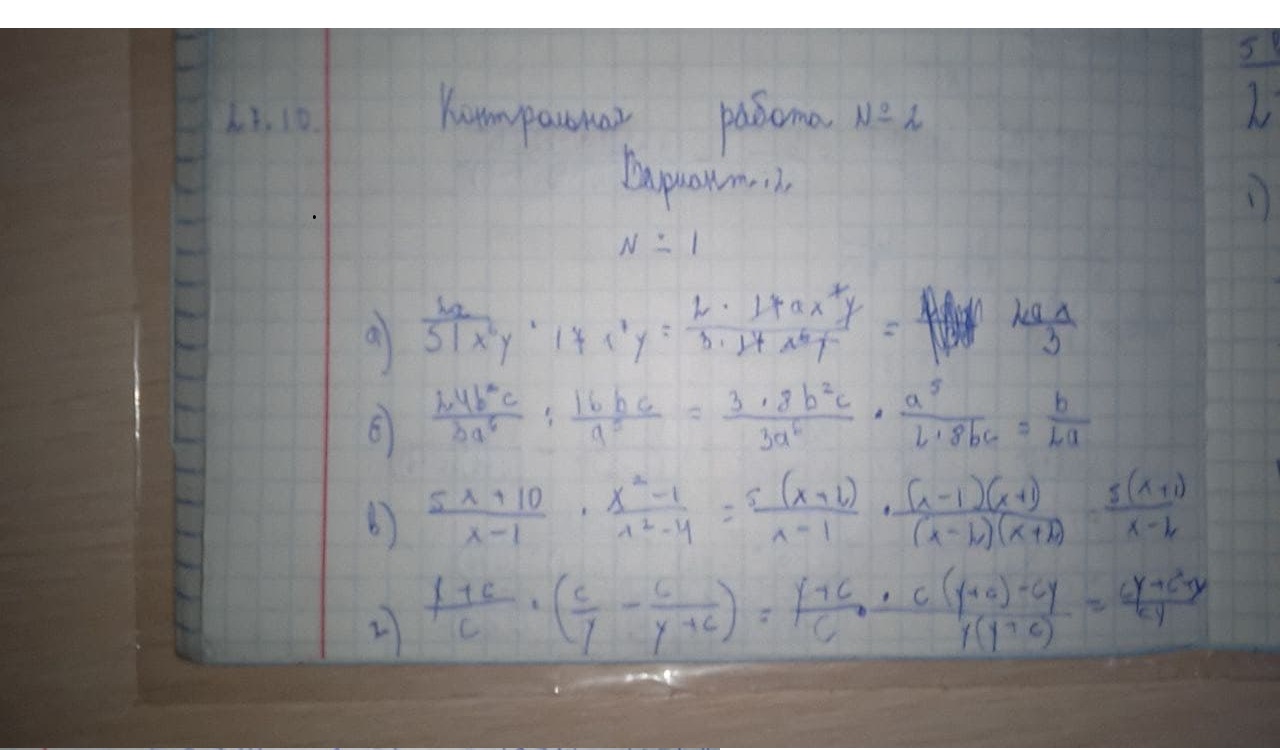 27.10. Контрольная работа № 2
Вариант 2
№ 1
а) 2a/51x⁶y · 17x⁷y = 2 · 17ax⁷y/3 · 17x⁶y = 2ax/3
б) 24b²c/3a⁶ : 16bc/a⁵ = 3 · 8b²c/3a⁶ · a⁵/2 · 8bc = b/2a
в) 5x+10/x-1 · x²-1/x²-4 = 5(x+2)/x-1 · (x-1)(x+1)/(x-2)(x+2) 5(x+1)/x-2
г) y+c/c · (c/y - c/y+c) = y+c/c · c(y+c)-cy/y(y+c) =
1)